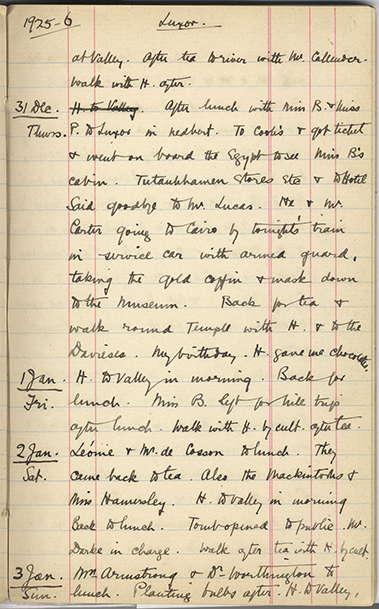 1925-6 Luxor.
at Valley. After tea to river with Mr. Callender.
Walk with H. after.
31 Dec. H. to Valley. After lunch with Miss B. & Miss
Thurs. P. to Luxor in . To Cook's & got ticket
& went on board the Egypt to see Miss B's
cabin. Tutankhamen Stores etc & to Hotel
Said goodbye to Mr. Lucas. He & Mr.
Carter going to Cairo by tonight's train
in service car with armed guard,
taking the gold coffin & mask down
to the Museum. Back for tea &
walk round Temple with H. & to the
Davieses. My birthday. H. gave me chocolates.
1 Jan. H. to Valley in morning. Back for
Fri. lunch. Miss B. left for hill trip
after lunch. Walk with H. by cult. after tea.
2 Jan. Léonie & Mr. de Cosson to lunch. They
Sat. came back to tea. Also the Mackintoshs &
Miss Hamersley. H. to Valley in morning
back to lunch. Tomb opened to public. Mr.
in charge. Walk after tea with H. by cult.
3 Jan. Mrs Armstrong & Dr. Worthington to
Sun. lunch. Planting bulbs after. H. to Valley,